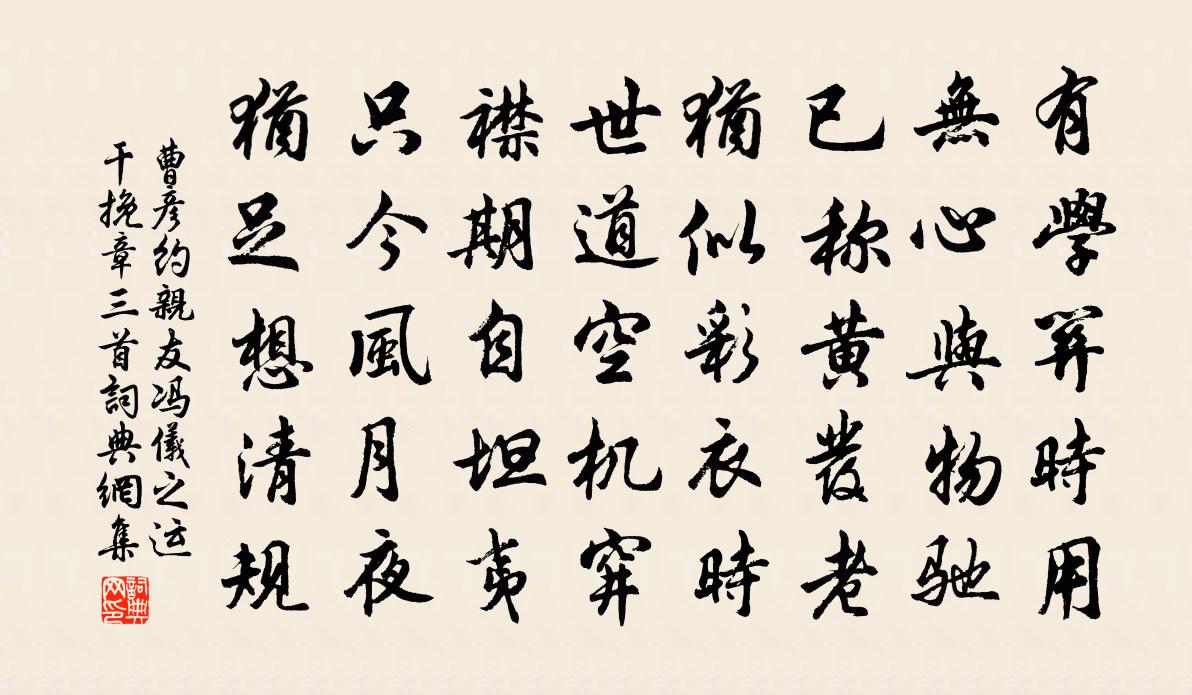 有學時用
無心與物馳
已称黃發老
猶似彩衣時
世道空机穽
襟期自坦夷
只今風月夜
猶足想清規
曹彦约親友冯儀之运
干挽章三首詞典網集
詞典網印